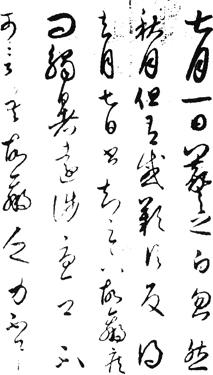 七月一日羲之白忽然
秋月但有感歎信反得
去月七日書知足下故羸疾
問觸暑遠涉憂卿不
可言吾故羸乏力不一一